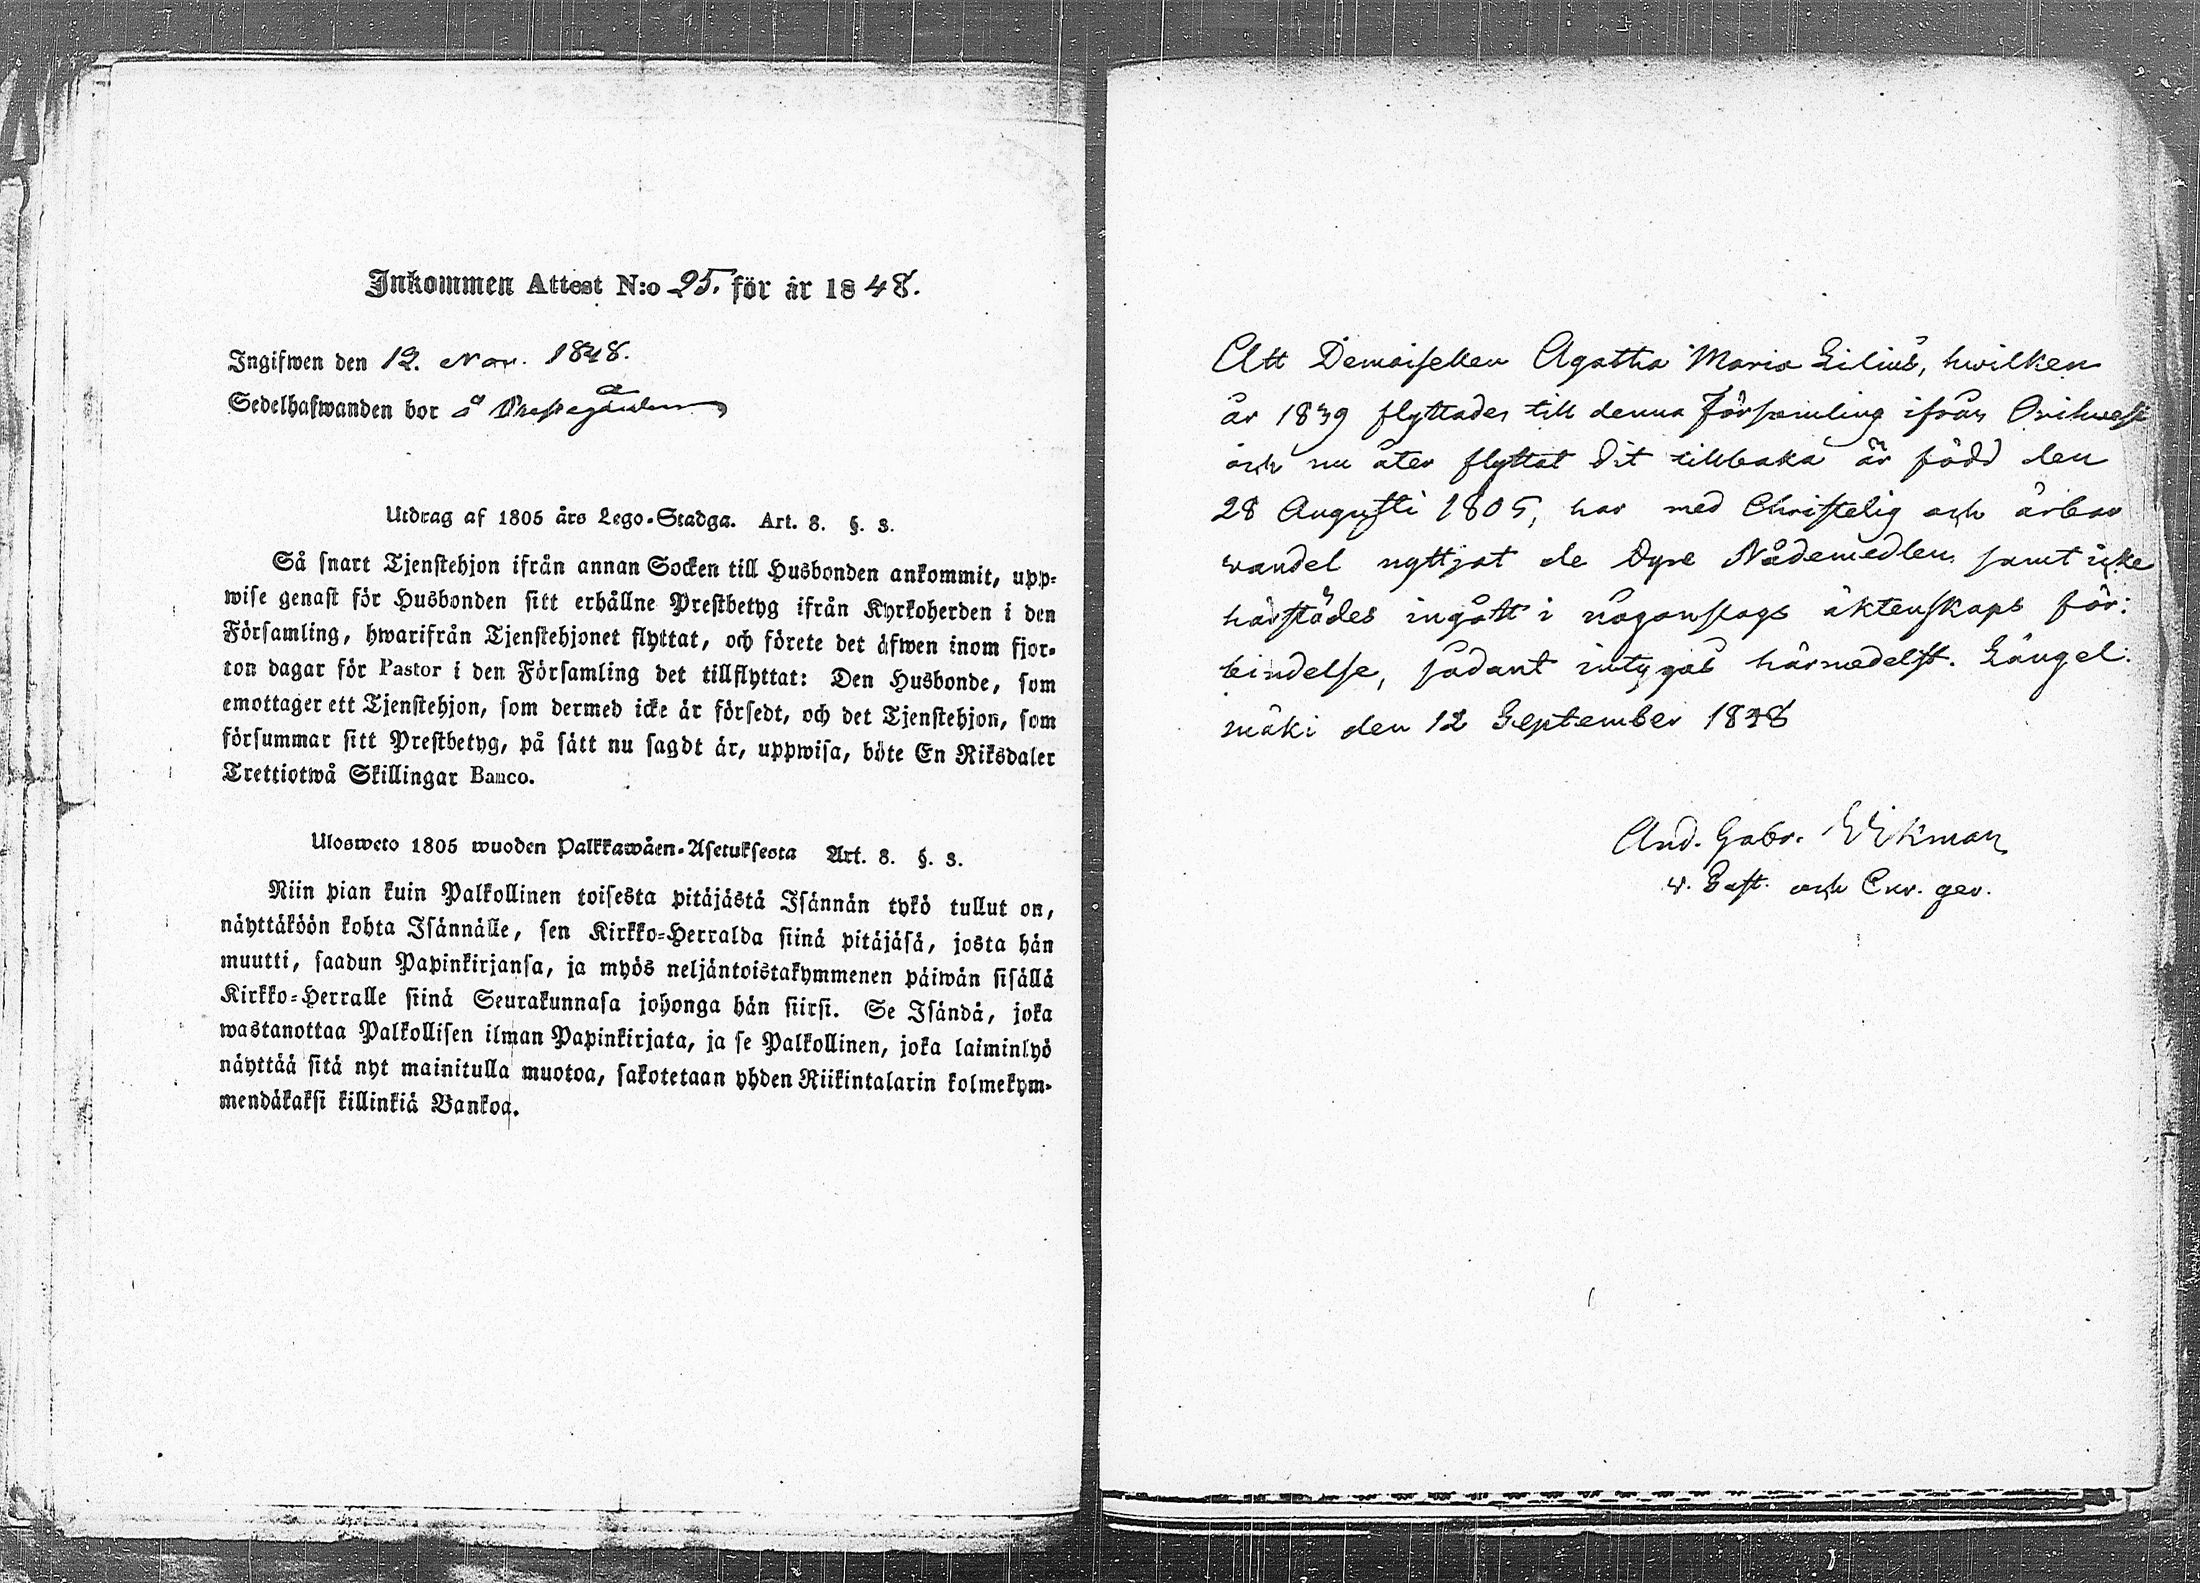 Inkommen Attest N:o 25. för år 1848.
Ingifwen den 12. Nov. 1848.
Sedelhafwanden bor å Prestegården
Utdrag af 1805 års Lego-Stadga. Art. 8. §. 3.
Så snart Tjenstehjon ifrån annan Socken till Husbonden ankommit, upp-
wise genast för Husbonden sitt erhållne Prestbetyg ifrån Kyrkoherden i den
Församling, hwarifrån Tjenstehjonet flyttat, och förete det äfwen inom fjor-
ton dagar för Pastor i den Församling det tillflyttat: Den Husbonde, som
emottager ett Tjenstehjon, som dermed icke är försedt, och det Tjenstehjon, som
försummar sitt Prestbetyg, på sätt nu sagdt är, uppwisa, böte En Riksdaler
Trettiotwå Skillingar Banco.
Ulosweto 1805 wuoden Palkkawäen-Asetuksesta Art. 8. §. 3.
Niin pian kuin Palkollinen toisesta pitäjästä Isännän tykö tullut on,
näyttäköön kohta Isännälle, sen Kirkko-Herralda siinä pitäjäsä, josta hän
muutti, saadun Papinkirjansa, ja myös neljäntoistakymmenen päiwän sisällä
Kirkko-Herralle siinä Seurakunnasa johonga hän siirsi. Se Isändä, joka
wastanottaa Palkollisen ilman Papinkirjata, ja se Palkollinen, joka laiminlyö
näyttää sitä nyt mainitulla muotoa, sakotetaan yhden Riikintalarin kolmekym-
mendäkaksi killinkiä Bankoa.
Att Demoisellen Agatha Maria Lilius, hwilken
år 1839 flyttades till denna Församling ifrån Orihwesi
och nu åter flyttat dit tillbaka är född den
28 Augusti 1805, har med Christelig och ärbar
wandel nyttjat de Dyre Nådemedlen samt icke
härstädes ingått i någonslags äktenskaps för:
bindelse, sådant intygas härmedelst. Längel:
mäki den 12 September 1848
And. Gabr. Wikman
v. Past. och Cur. ger.